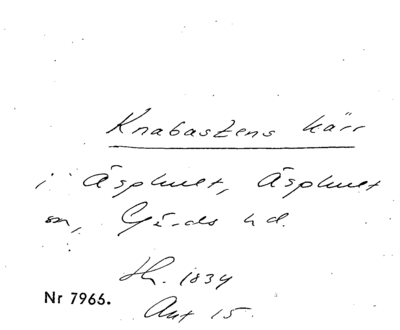 Knabastens kärr
i Äsphult, Äsphult
sn, Gärds hd.
Sk. 1834
Nr 7966.
Akt 15.